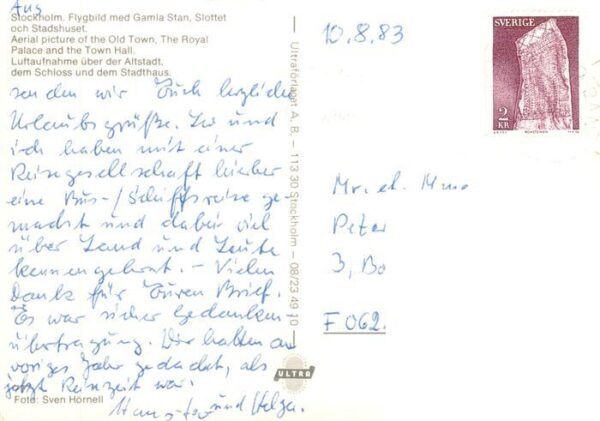 Aus
Stockholm. Flygbild med Gamla Stan, Slottet
och Stadshuset.
Aerial picture of the Old Town, The Royal
Palace and the Town Hall.
Luftaufnahme über der Altstadt,
dem Schloss und dem Stadthaus.
senden wir Euch herzliche
Urlaubsgrüße. und
ich haben mit einer
Reisegesellschaft hierher
eine Bus-/Schiffsreise ge-
macht und dabei viel
über Land und Leute
kennengelernt. – Vielen
Dank für Euren Brief.
Es war sicher Gedanken-
übertragung. Wir hatten an
voriges Jahr gedacht, als
jetzt Reisezeit war.
und Helga.
Foto: Sven Hörnell
Ultraförlaget A.B. – 113 30 Stockholm – 08/23 49 10
ULTRA
10.8.83
SVERIGE
2
KR
Mr. et Mme
Peter
3, Bo
F 062.